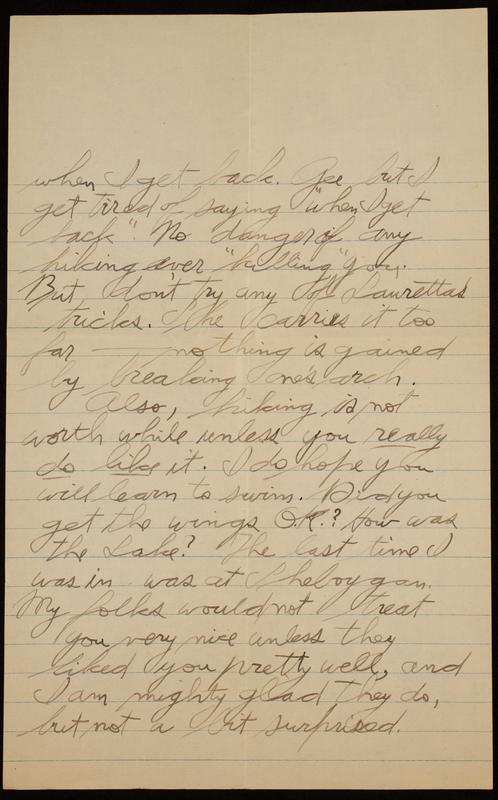 when I get back. Gee but I
get tired of saying "when I get
back". No danger of any
hiking ever "killing" you.
But, dont try any of Lauretta's
tricks. She carries it too
far — nothing is gained
by breaking one's arch.
Also, hiking is not
worth while unless you really
do like it. I do hope you
will learn to swim. Did you
get the wings O.K.? How was
the Lake? The last time I
was in was at Sheboygan.
My folks would not treat
you very nice unless they
liked you pretty well, and
I am mighty glad they do,
but not a bit surprised.